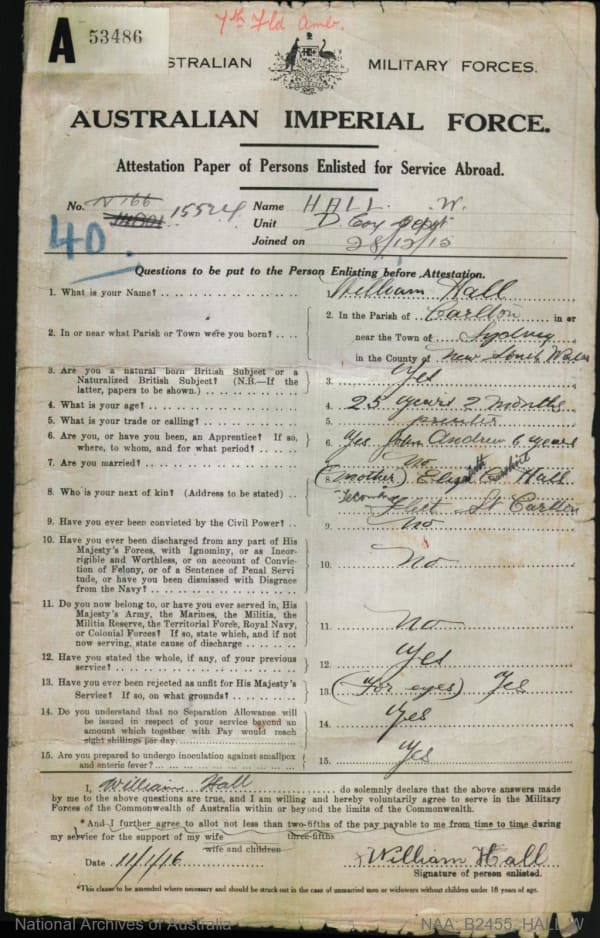 7th Fld Amb.
A 53486
STRALIAN MILITARY FORCES.
AUSTRALIAN IMPERIAL FORCE.
Attestation Paper of Persons Enlisted for Service Abroad.
No. N166 15524 Name HALL W.
Unit D Coy Depot
40. Joined on 28/12/15
Questions to be put to the Person Enlisting before Attestation.
1. What is your Name? William Hall
2. In or near what Parish or Town were you born? 2. In the Parish of Carlton in or
near the Town of Sydney
in the County of New South Wales
3. Are you a natural born British Subject or a
Naturalized British Subject? (N.B.—If the
latter, papers to be shown.) 3. Yes
4. What is your age? 4. 25 years 2 months
5. What is your trade or calling? 5. printer
6. Are you, or have you been, an Apprentice? If so,
where, to whom, and for what period? 6. Yes John Andrew 6 years
7. Are you married? no
8. Who is your next of kin? (Address to be stated) 8. (mother) Hall
St Carlton
9. Have you ever been convicted by the Civil Power? 9. no
10. Have you ever been discharged from any part of His
Majesty's Forces, with Ignominy, or as Incor-
rigible and Worthless, or on account of Convic-
tion of Felony, or of a Sentence of Penal Servi
tude, or have you been dismissed with Disgrace
from the Navy? 10. no
11. Do you now belong to, or have you ever served in, His
Majesty's Army, the Marines, the Militia, the
Militia Reserve, the Territorial Force, Royal Navy,
or Colonial Forces? If so, state which, and if not
now serving, state cause of discharge 11. no
12. Have you stated the whole, if any, of your previous
service? 12. Yes
13. Have you ever been rejected as unfit for His Majesty's
Service? If so, on what grounds? 13. (For eyes) Yes
14. Do you understand that no Separation Allowance will
be issued in respect of your service beyond an
amount which together with Pay would reach
eight shillings per day. 14. Yes
15. Are you prepared to undergo inoculation against smallpox
and enteric fever? 15. Yes
I, William Hall do solemnly declare that the above answers made
by me to the above questions are true, and I am willing and hereby voluntarily agree to serve in the Military
Forces of the Commonwealth of Australia within or beyond the limits of the Commonwealth.
*And I further agree to allot not less than two-fifths of the pay payable to me from time to time during
three-fifths
my service for the support of my wife
wife and children
Date 11/1/16 William Hall
Signature of person enlisted.
*This clause to be amended where necessary and should be struck out in the case of unmarried men or widowers without children under 18 years of age.
National Archives of Australia NAA: B2455, HALL W